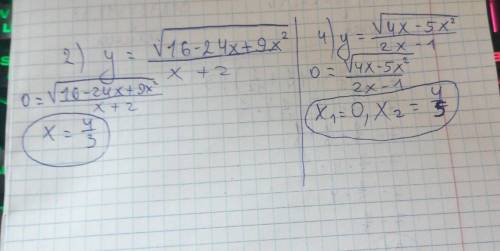 2) y = √(16-24x+9x²) / (x+2)
0 = √(16-24x+9x²) / (x+2)
x = 4/3
4) y = √(4x-5x²) / (2x-1)
0 = √(4x-5x²) / (2x-1)
x₁=0, x₂ = 4/5